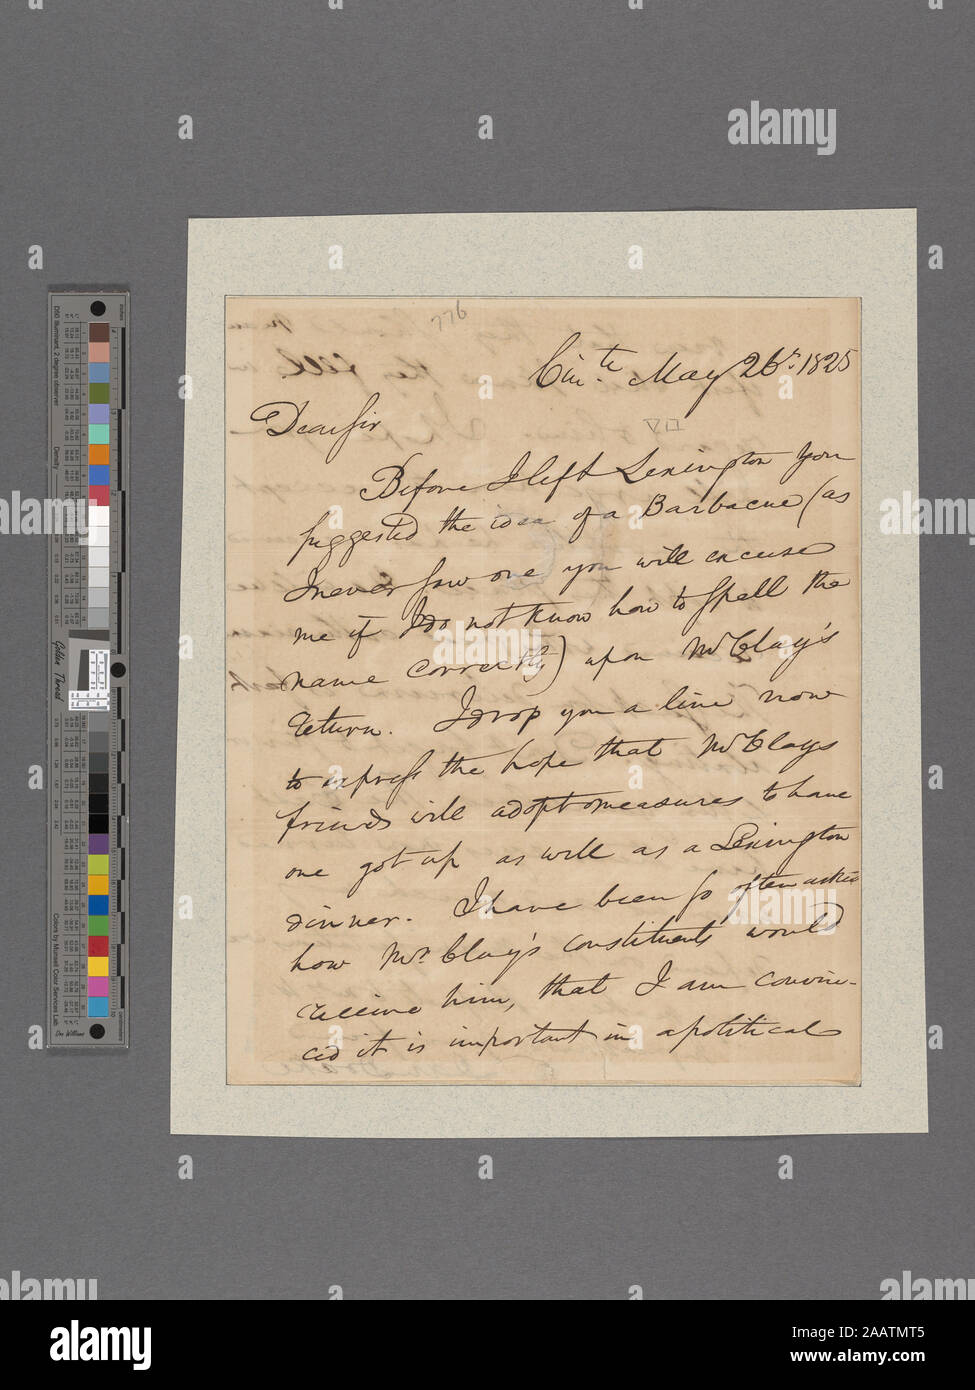 776
Cin.ti May 26th 1825
Dear Sir
VII
Before I left Lexington you
suggested the idea of a Barbacue (as
I never saw one you will excuse
me if I do not know how to spell the
name correctly) upon Mr Clay's
return. I drop you a line now
to express the hope that Mr Clays
friends will adopt measures to have
one got up as well as a Lexington
dinner. I have been so often asked
how Mr. Clay's constituents would
receive him, that I am convinc-
ed it is important in a political
alamy
Image ID: 2AATMT5
www.alamy.com